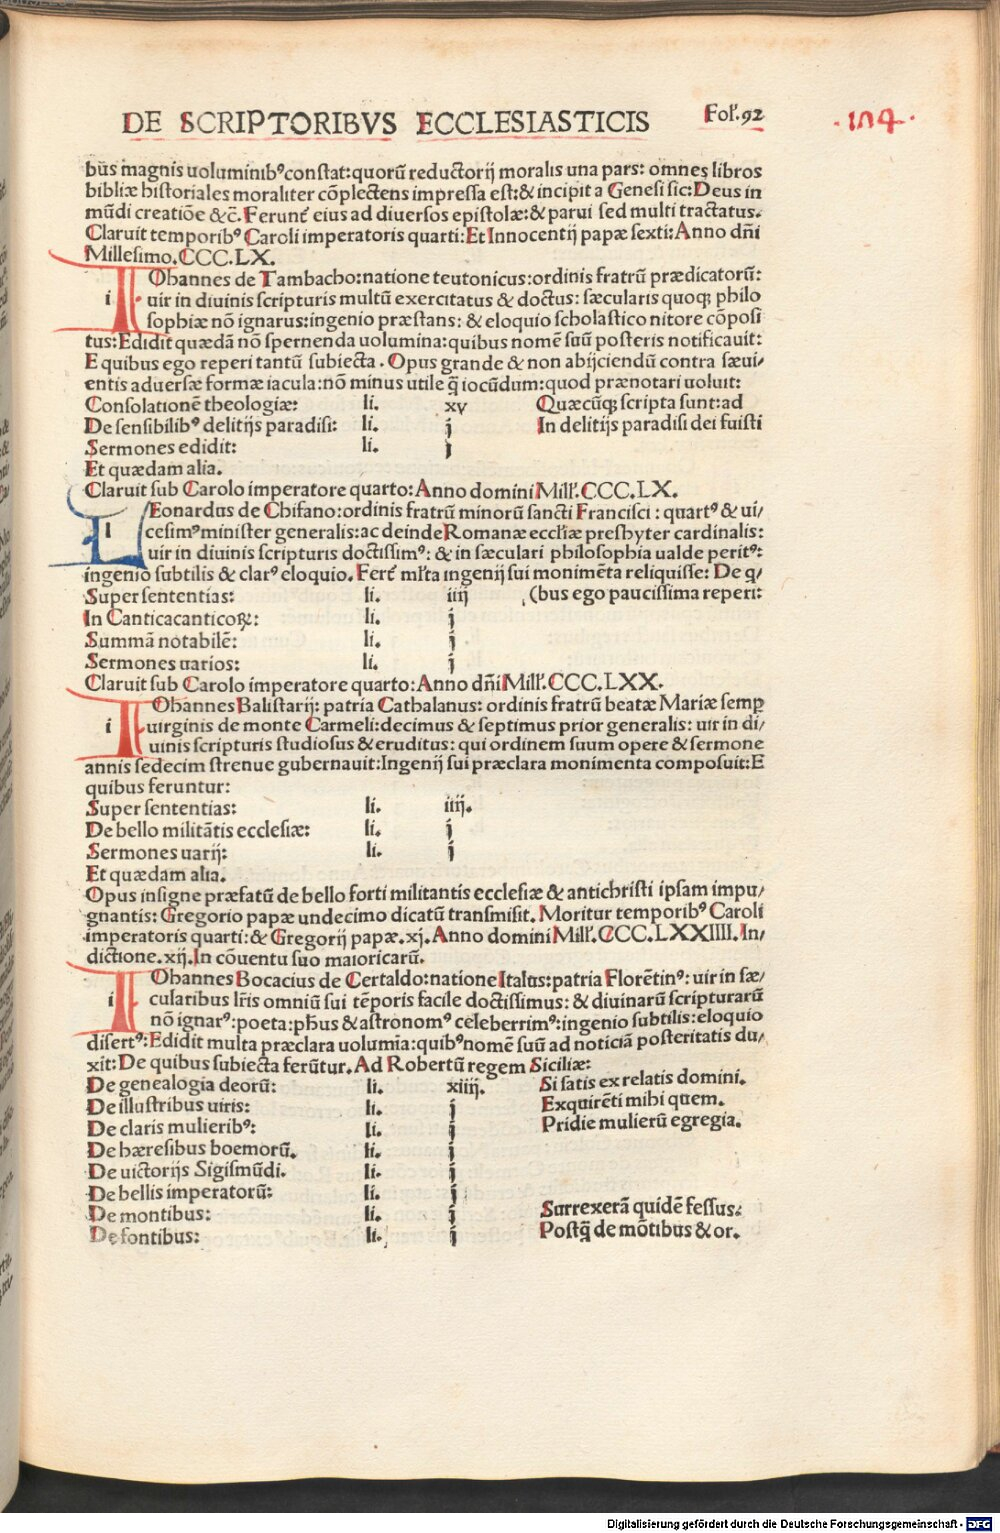 DE SCRIPTORIBVS ECCLESIASTICIS Fol'.92
·104·
bus magnis uoluminibꝰ constat: quorū reductorij moralis una pars: omnes libros
bibliæ historiales moraliter cōplectens impressa est: & incipit a Genesi sic: Deus in
mūdi creatiōe &c̄. Ferunt̄ eius ad diuersos epistolæ: & parui sed multi tractatus.
Claruit temporibꝰ Caroli imperatoris quarti: Et Innocentij papæ sexti: Anno dn̄i
Millesimo.CCC.LX.
iIOhannes de Tambacho: natione teutonicus: ordinis fratrū prædicatorū:
uir in diuinis scripturis multū exercitatus & doctus: sæcularis quoqꝫ philo
sophiæ nō ignarus: ingenio præstans: & eloquio scholastico nitore cōposi
tus: Edidit quædā nō spernenda uolumina: quibus nomē suū posteris notificauit:
E quibus ego reperi tantū subiecta. Opus grande & non abijciendū contra sæui/
entis aduersæ formæ iacula: nō minus utile q̄ iocūdum: quod prænotari uoluit:
Consolationē theologiæ: li. xv Quæcūqꝫ scripta sunt: ad
De sensibilibꝰ delitijs paradisi: li. j In delitijs paradisi dei fuisti
Sermones edidit: li. j
Et quædam alia.
Claruit sub Carolo imperatore quarto: Anno domini Mill'.CCC.LX.
lLEonardus de Chifano: ordinis fratrū minorū sancti Francisci: quartꝰ & ui/
cesimꝰ minister generalis: ac deinde Romanæ eccl̄iæ presbyter cardinalis:
uir in diuinis scripturis doctissimꝰ: & in sæculari philosophia ualde peritꝰ:
ingenio subtilis & clarꝰ eloquio. Fert̄ ml̄ta ingenij sui monimēta reliquisse: De q/
Super sententias: li. iiij (bus ego paucissima reperi:
In Canticacanticoꝝ: li. j
Summā notabilē: li. j
Sermones uarios: li. j
Claruit sub Carolo imperatore quarto: Anno dn̄i Mill'.CCC.LXX.
iIOhannes Balistarij: patria Cathalanus: ordinis fratrū beatæ Mariæ semꝑ
uirginis de monte Carmeli: decimus & septimus prior generalis: uir in di/
uinis scripturis studiosus & eruditus: qui ordinem suum opere & sermone
annis sedecim strenue gubernauit: Ingenij sui præclara monimenta composuit: E
quibus feruntur:
Super sententias: li. iiij.
De bello militātis ecclesiæ: li. j
Sermones uarij: li. j
Et quædam alia.
Opus insigne præfatū de bello forti militantis ecclesiæ & antichristi ipsam impu/
gnantis: Gregorio papæ undecimo dicatū transmisit. Moritur temporibꝰ Caroli
imperatoris quarti: & Gregorij papæ.xj. Anno domini Mill'.CCC.LXXIIII.In/
dictione.xij.In cōuentu suo maioricarū.
iIOhannes Bocacius de Certaldo: natione Italus: patria Florētinꝰ: uir in sæ/
cularibus lr̄is omniū sui tēporis facile doctissimus: & diuinarū scripturarū
nō ignarꝰ: poeta: ph̄us & astronomꝰ celeberrimꝰ: ingenio subtilis: eloquio
disertꝰ: Edidit multa præclara uolumia: quibꝰ nomē suū ad noticiā posteritatis du/
xit: De quibus subiecta ferūtur. Ad Robertū regem Siciliæ:
De genealogia deorū: li. xiiij. Si satis ex relatis domini.
De illustribus uiris: li. j Exquirēti mihi quem.
De claris mulieribꝰ: li. j Pridie mulierū egregia.
De hæresibus boemorū. li. j
De uictorijs Sigismūdi. li. j
De bellis imperatorū: li. j
De montibus: li. j Surrexerā quidē fessus:
De fontibus: li. j Postq̄ de mōtibus & or.
Digitalisierung gefördert durch die Deutsche Forschungsgemeinschaft - DFG